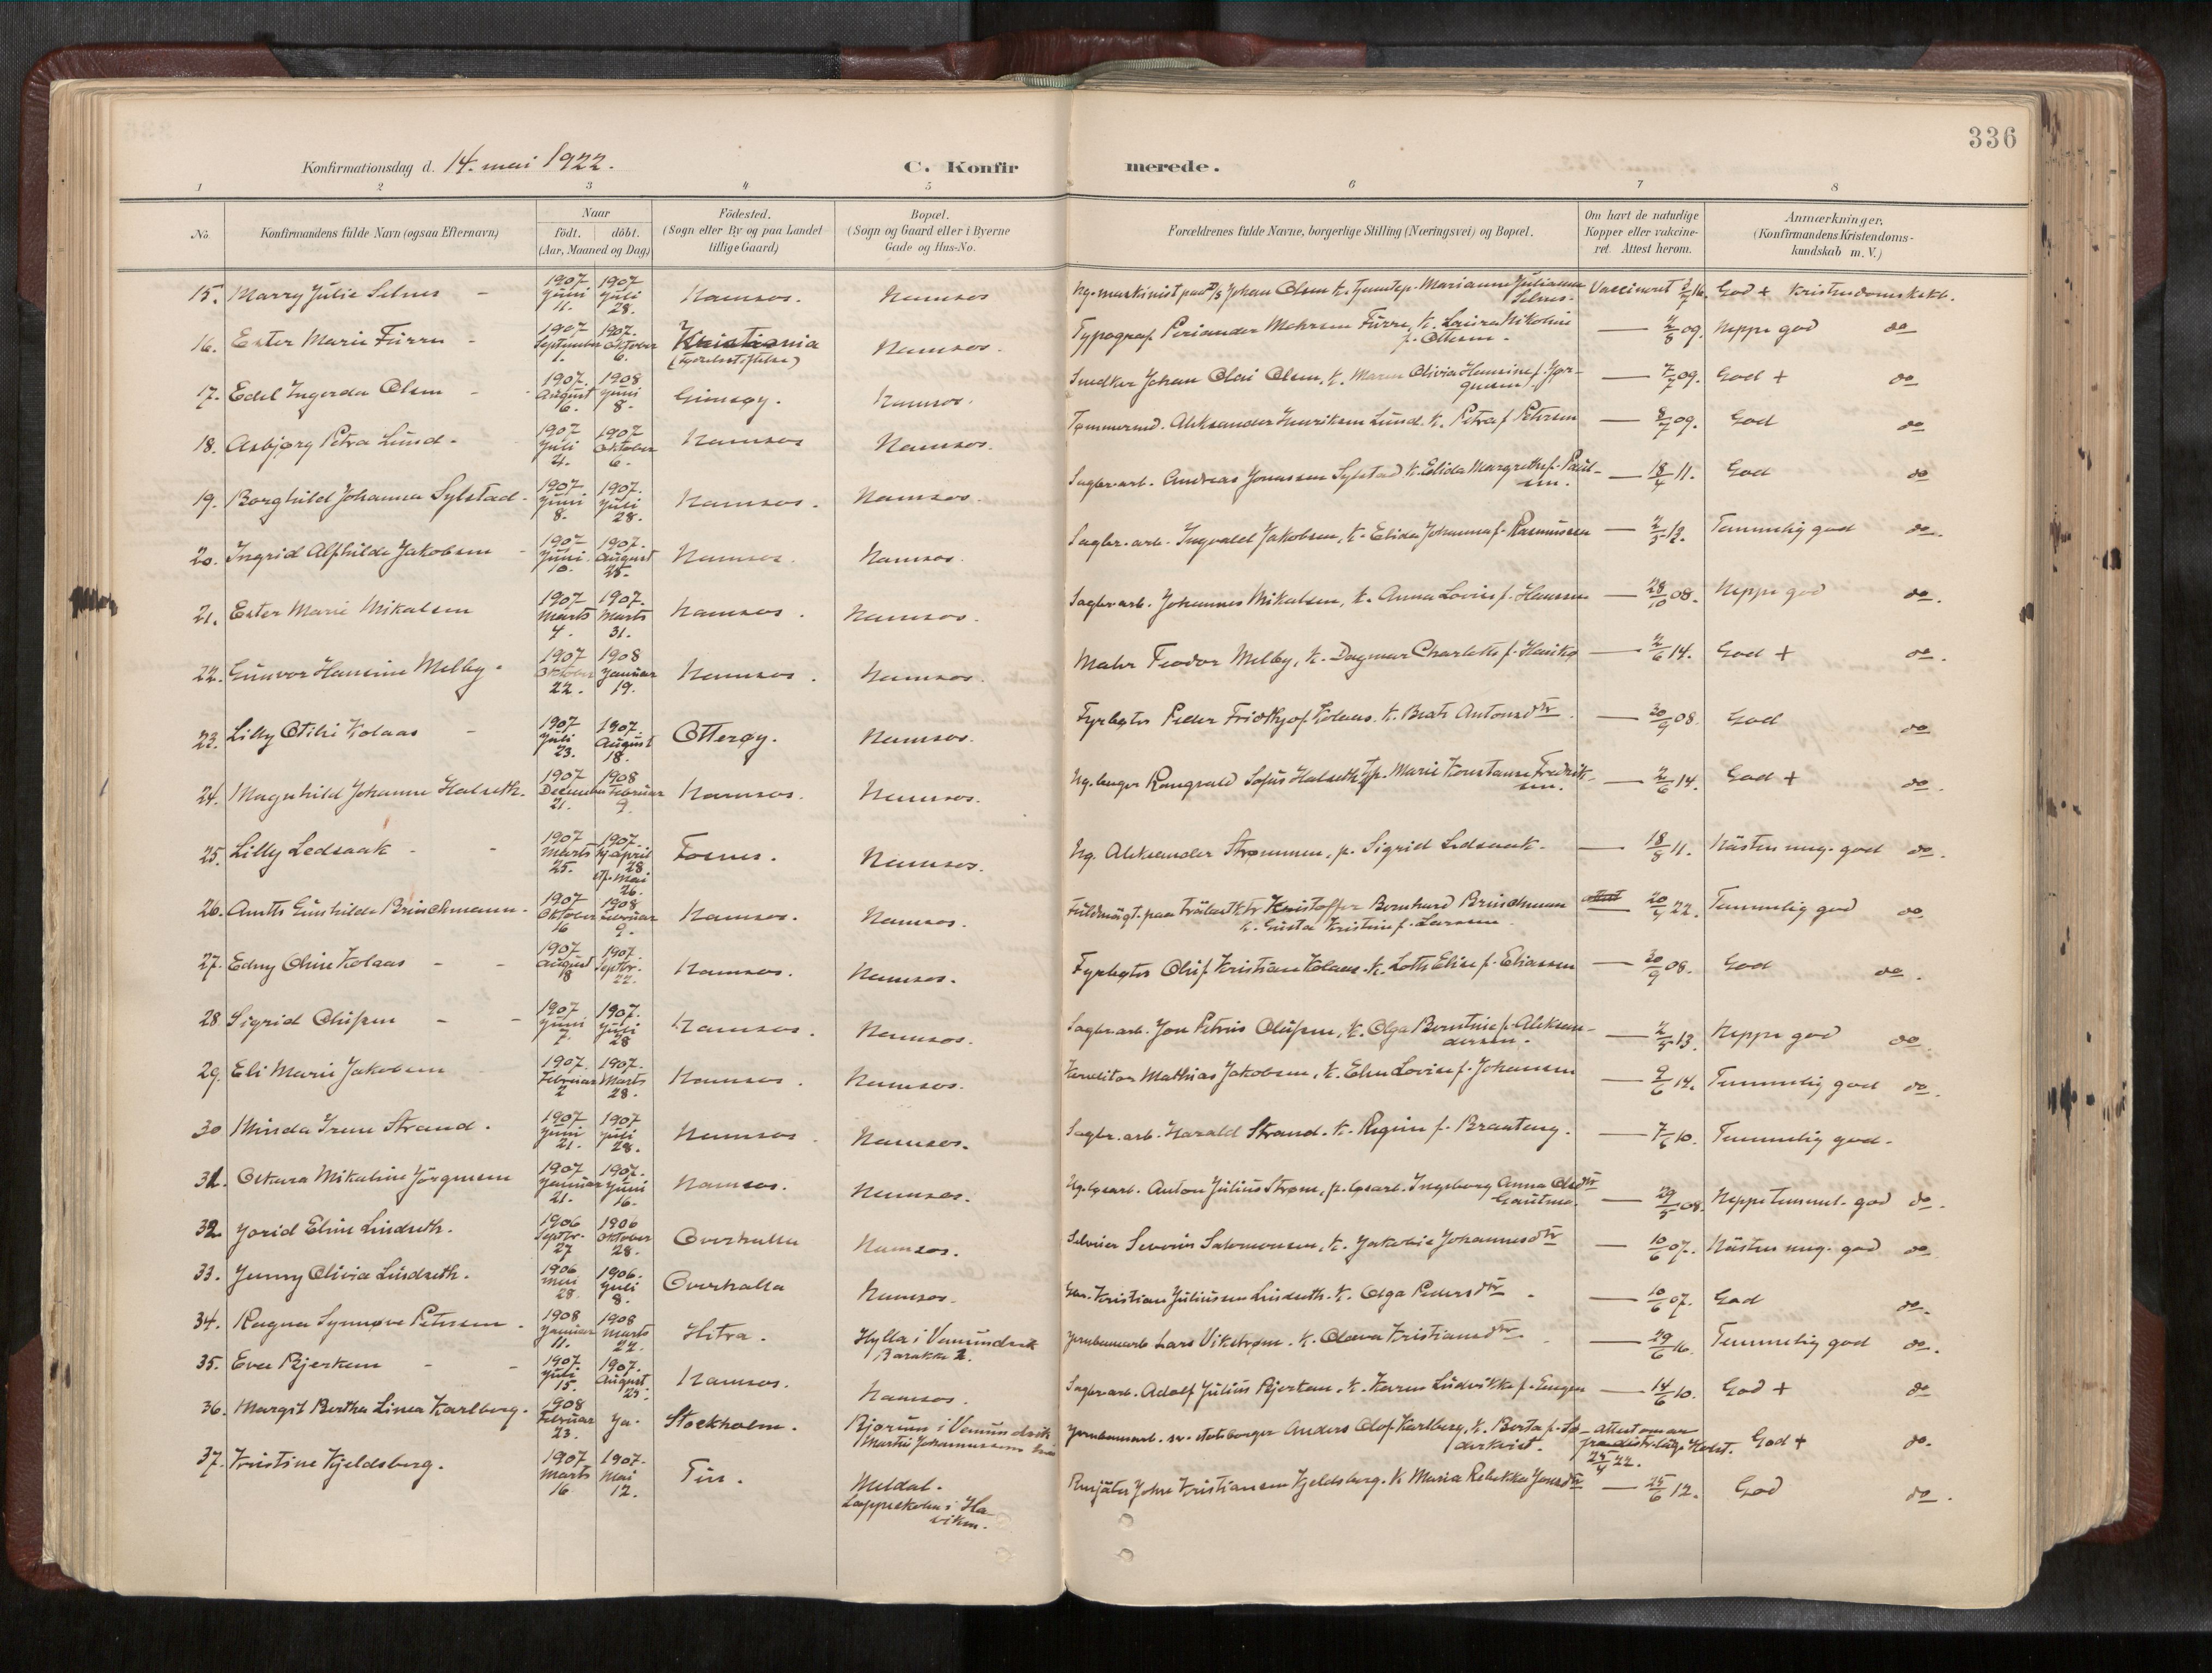 336
Konfirmationsdag d. 14. mai 1922. C. Konfirmerede.
1 2 3 4 5 6 7 8
No. Konfirmandens fulde Navn (ogsaa Efternavn) Naar födt. döbt. (Aar, Maaned og Dag) Födested. (Sogn eller By og paa Landet tillige Gaard) Bopæl. (Sogn og Gaard eller i Byerne Gade og Hus-No. Forældrenes fulde Navne, borgerlige Stilling (Næringsvei) og Bopæl. Om havt de naturlige Kopper eller vakcineret. Attest herom. Anmærkninger. (Konfirmandens Kristendomskundskab m. V.)
15. Marry Julie Selnes 1907 Juni 11. 1907 Juli 28. Namsos. Namsos Johan Olsen Marianne Julianne Selnes. Vaccineret God + Kristendomskskb.
16. Ester Marie Fürru 1907 September 1. 1907. Oktober 6. Kristiania (Fødselsstiftelse) Namsos. Typograf Periander Fürru, k. Laura Nikoline f. Ottesen. 09. Neppe god do
17. Edel Ingerda Olsen 1907. August 6. 1908 Juni 8. Gimsøy. Namsos. Snedker Johan Olai Olsen, k. Maren Olivia Hansine f. Jørgensen 7/7 09. God + do
18. Asbjørg Petra Lund. 1907 Juli 4. 1907 Oktober 6. Namsos Namsos. Tømmermd. Aleksander Henriksen Lund. k. Petra f. Petersen 8/7 09. God do
19. Borghild Johanna Sylstad. 1907 Juni 8. 1907. Juli 28. Namsos. Namsos. Sagbr.arb. Andreas Jonassen Sylstad k. Elida Margrethe f. Paulsen. 18/4 11. God do
20. Ingrid Alfhilde Jakobsen 1907 Juni 10. 1907. August 25. Namsos. Namsos. Sagbr. arb. Ingvald Jakobsen, k. Elida Johanna f. Rasmussen 2/5 12. Temmelig god do.
21. Ester Marie Mikalsen 1907 Marts 4. 1907. Marts 31. Namsos. Namsos. Sagbr.arb. Johannes Mikalsen, k. Anna Lovise f. Hansen 28/10 08. Neppe god do.
22. Gunvor Hansine Melby. 1907 Oktober 22. 1908 Januar 19. Namsos. Namsos. Maler Teodor Melby, k. Dagmar Charlotte f. 2/6 14. God + do.
23. Lilly Otilie Kolaas 1907 Juli 23. 1907. August 18. Otterøy. Namsos. Fyrbøter Peder Fridthjof Kolaas. k. Berta Antonsdtr. 30/9 08. God do
24. Magnhild Johanne Halseth. 1907 December 21. 1908 Februar 9. Namsos. Namsos. Rangvald Sofus Halseth, p. Marie Konstanse Fredriksen. 2/6 14. God + do.
25. Lilly Ledsaak 1907 Marts 25. 1907. hj. april 28. st. f. Mai 26. Fosnes. Namsos. Ug. Aleksander Strømmen, p. Sigrid Ledsaak. 18/8 11. Nästen mug. god do.
26. Anette Gunhilde Brinchmann. 1907 Oktober 16 1908 Februar 9. Namsos. Namsos. Fuldmägt. paa Kristoffer Bernhard Brinchmann k. Gusta Kristine f. Larssen. 20/4 22. Temmelig god do
27. Edny Oline Kolaas 1907 August 18 1907. Septbr. 22. Namsos. Namsos. Fyrbøter Oluf Kristian Kolaas. k. Lotte Elise f. Eliassen 30/9 08. God do.
28. Sigrid Olufsen 1907 Juni 7. 1907. Juli 28 Namsos. Namsos. Sagbr.arb. Jon Petrus Olufsen, k. Olga Berntine f. Aleksandersen. 2/5 13. Neppe god do.
29. Eli Marie Jakobsen 1907. Februar 2 1907. Marts 28. Namsos. Namsos. Konditor Mathias Jakobsen, k. Elen Lovise f. Johansen 9/6 14. Temmelig god do.
30 Minda Irene Strand. 1907 Juni 21. 1907. Juli 28. Namsos. Namsos. Sagbr. arb. Harald Strand. k. Regine f. Brauteng. 7/6 10. Temmelig god.
31. Oskara Mikaline Jörgensen 1907 Januar 21. 1907. Juni 16. Namsos. Namsos. Anton Julius Strøm, p. Ingeborg Anna Olsdtr Gautmo. 29/5 08. Neppe temmel. god do.
32 Jorid Eline Lindseth. 1906 Septbr. 27 1906 Oktober 28. Overhalla Namsos. Selveier Severin Salomonsen, k. Jakobie Johannesdtr 10/6 07. Nästen mug. god do
33. Jenny Olivia Lindseth. 1906 Mai 28. 1906. Juli 8. Overhalla Namsos. Kristian Juliussen Lindseth. k. Olga Pedersdtr. 10/6 07. God do.
34. Ragna Synnøve Petersen. 1908 Januar 11. 1908 Marts 22. Hitra. Hylla i Vemundvik Barakke 2. Jernbanearb. Lars Vikstrøm. k. Olava Kristiansdtr. 29/6 16. Temmelig god do.
35. Eva Bjerken 1907. Juli 15. 1907. August 25. Namsos. Namsos. Sagbr.arb. Adolf Julius Bjerken, k. Karen Ludvikke f. Engen 14/6 10. God + do
36. Margit Bertha Linea Karlberg. 1908 Februar 23. Ja. Stockholm. Bjørum i Vemundvik Jernbanearb. sv. statsborger Anders Olof Karlberg, k. Berta f. Söderkvist. attest om vac fra distr.läge Holst. 25/4 22. God + do.
37. Kristine Kjeldsberg. 1907 Marts 16. 1907. Mai 12. Tin. Meldal. Lappeskolen i Haviken. Renjäter John Kristiansen Kjeldsberg. k. Maria Rebekka Jonsdtr 25/6 12. God do.